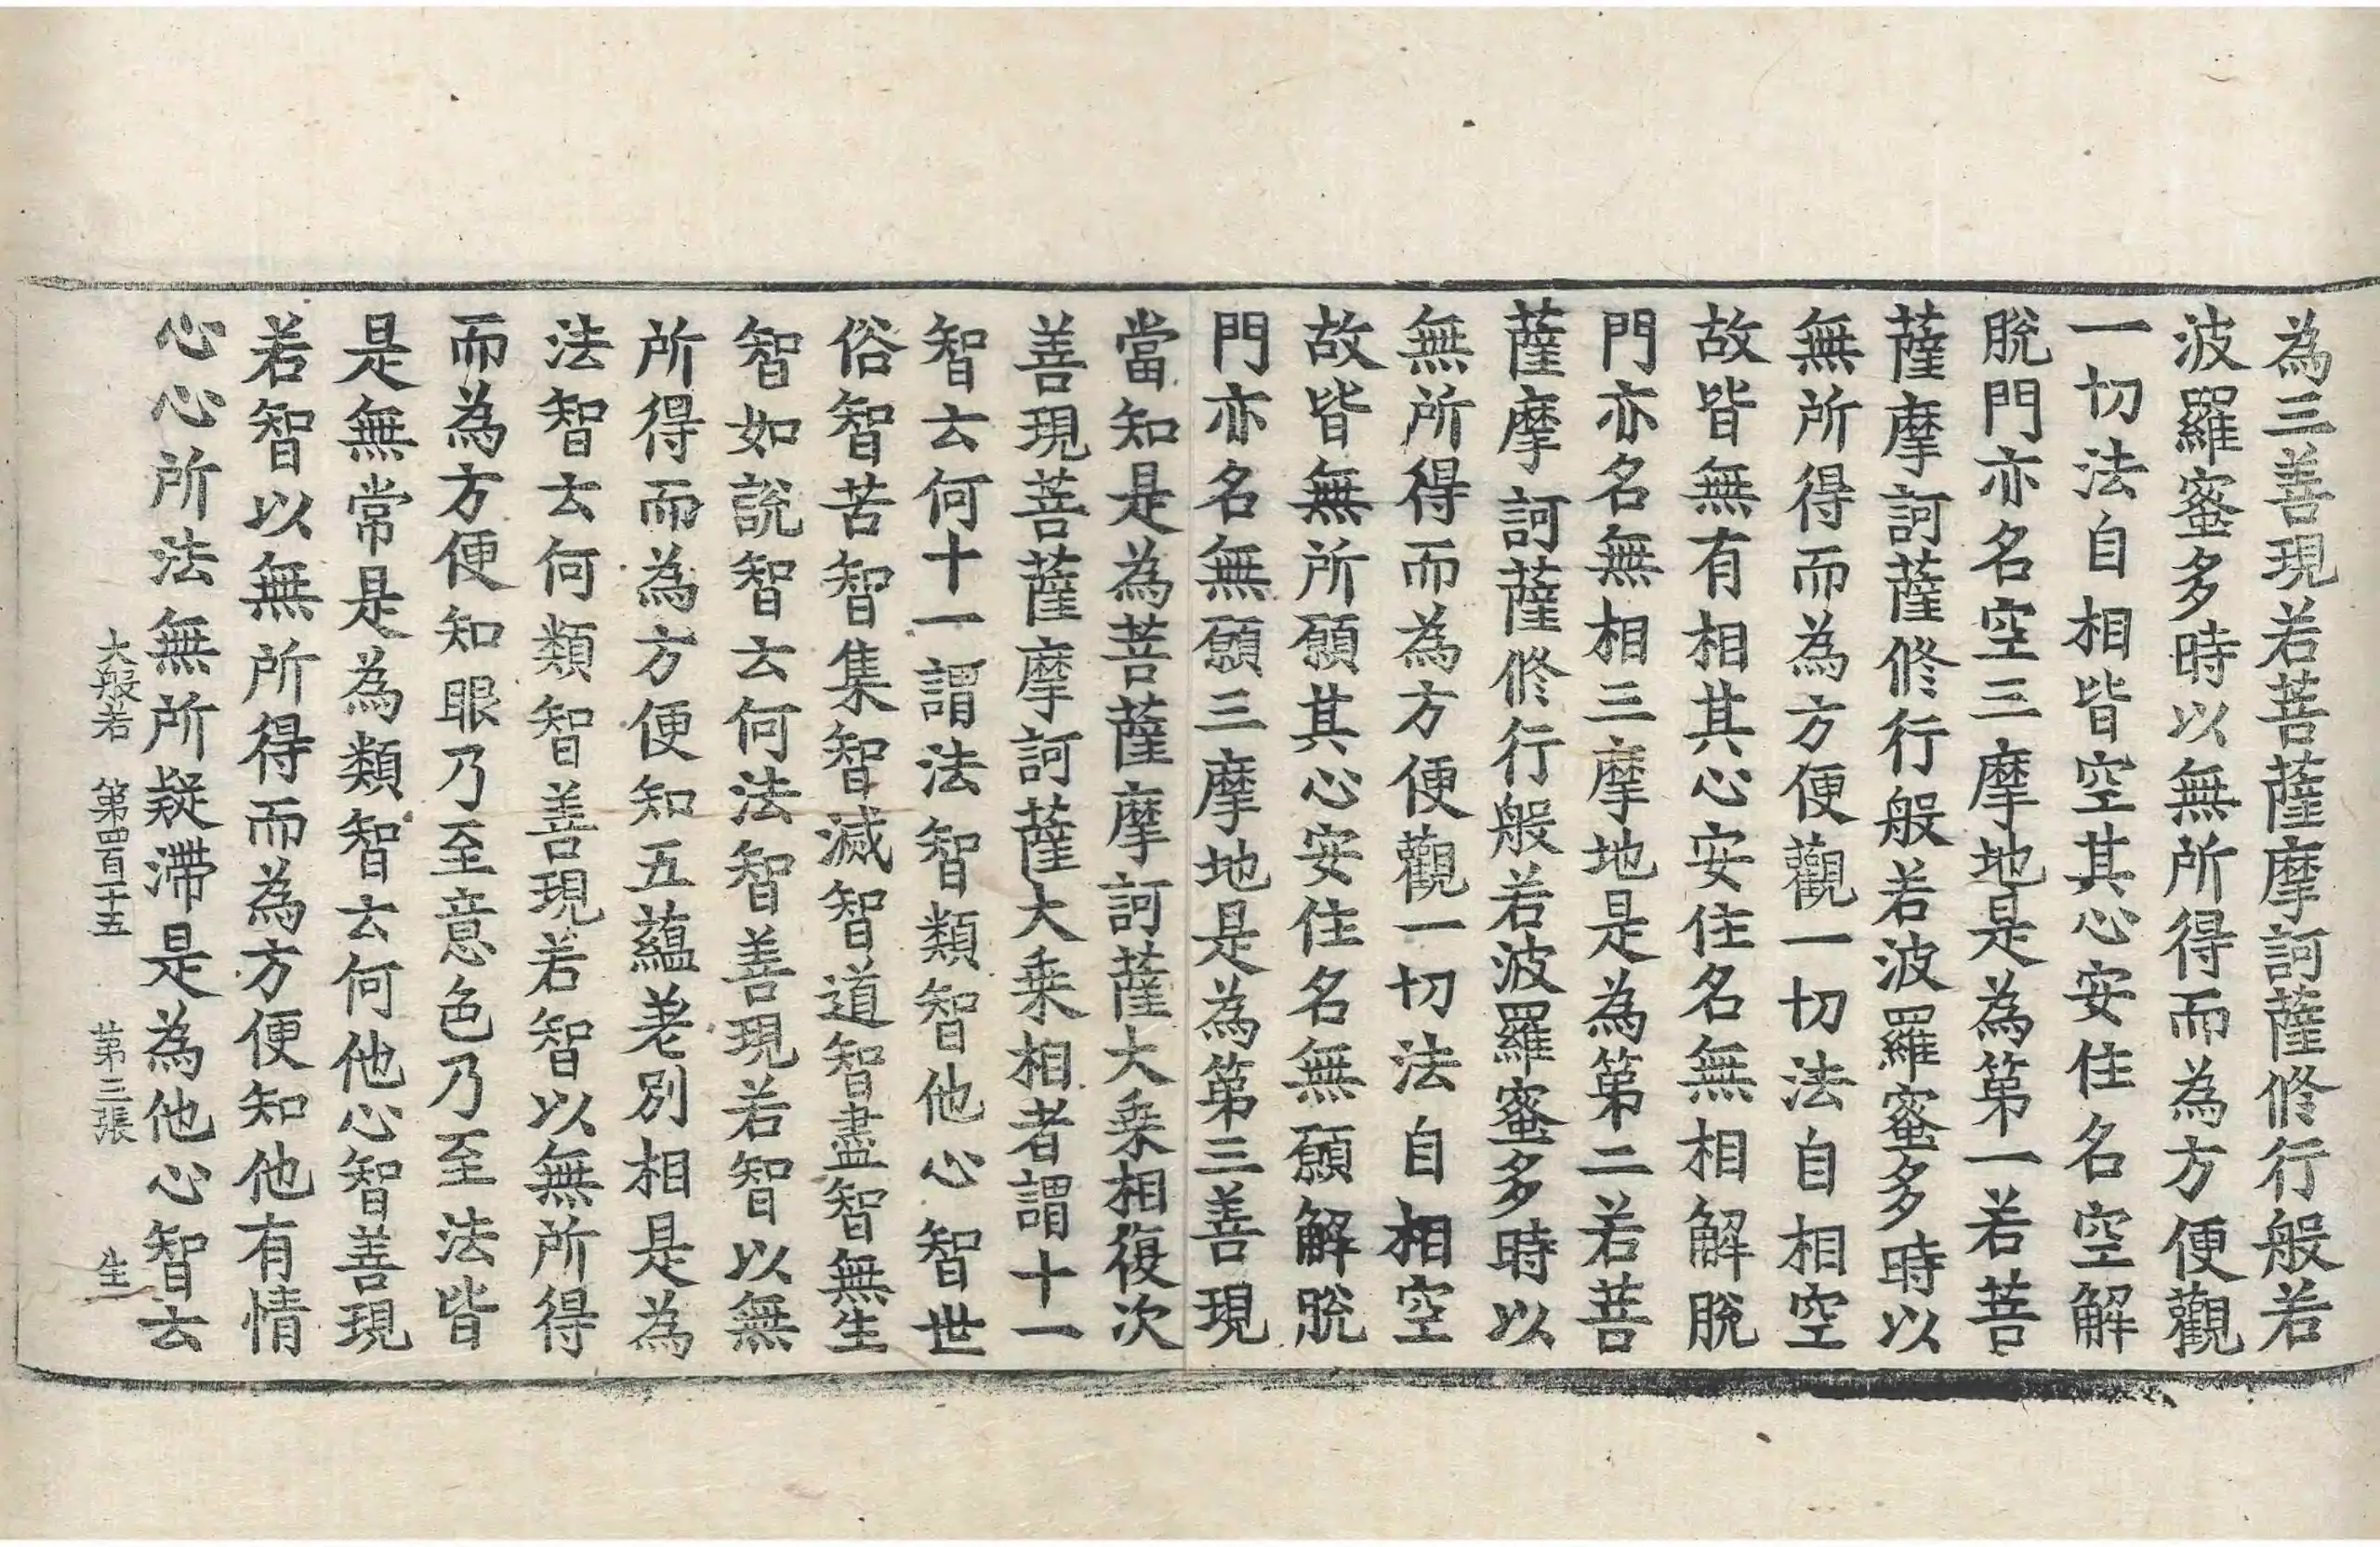 為三善現若菩薩摩訶薩修行般若
波羅蜜多時以無所得而為方便觀
一切法自相皆空其心安住名空解
脫門亦名空三摩地是為第一若菩
薩摩訶薩修行般若波羅蜜多時以
無所得而為方便觀一切法自相空
故皆無有相其心安住名無相解脫
門亦名無相三摩地是為第二若菩
薩摩訶薩修行般若波羅蜜多時以
無所得而為方便觀一切法自相空
故皆無所願其心安住名無願解脫
門亦名無願三摩地是為第三善現
當知是為菩薩摩訶薩大乗相復次
善現菩薩摩訶薩大乗相者謂十一
智云何十一謂法智類智他心智世
俗智苦智集智滅智道智盡智無生
智如說智云何法智善現若智以無
所得而為方便知五蘊差別相是為
法智云何類智善現若智以無所得
而為方便知眼乃至意色乃至法皆
是無常是為類智云何他心智善現
若智以無所得而為方便知他有情
心心所法無所疑滯是為他心智云
大般若 第四百十五 第三張 生